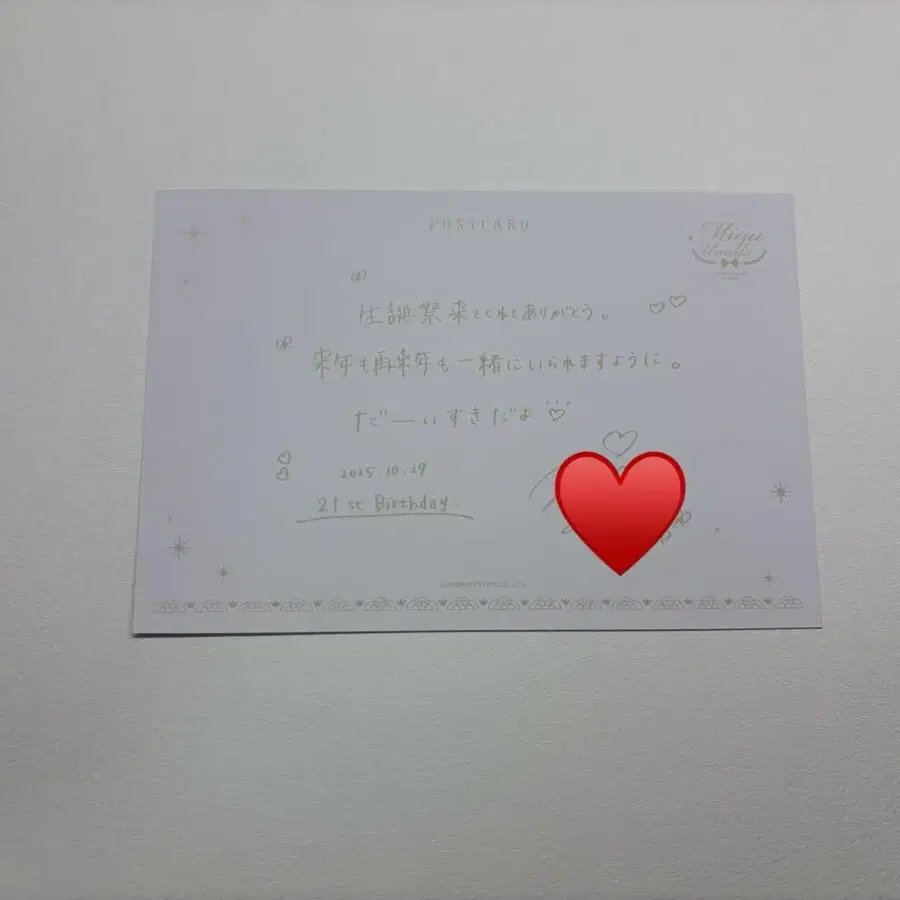 POSTCARD
生誕祭来てくれてありがとう。
来年も再来年も一緒にいられますように。
だーいすきだよ
2025.10.29
21st Birthday